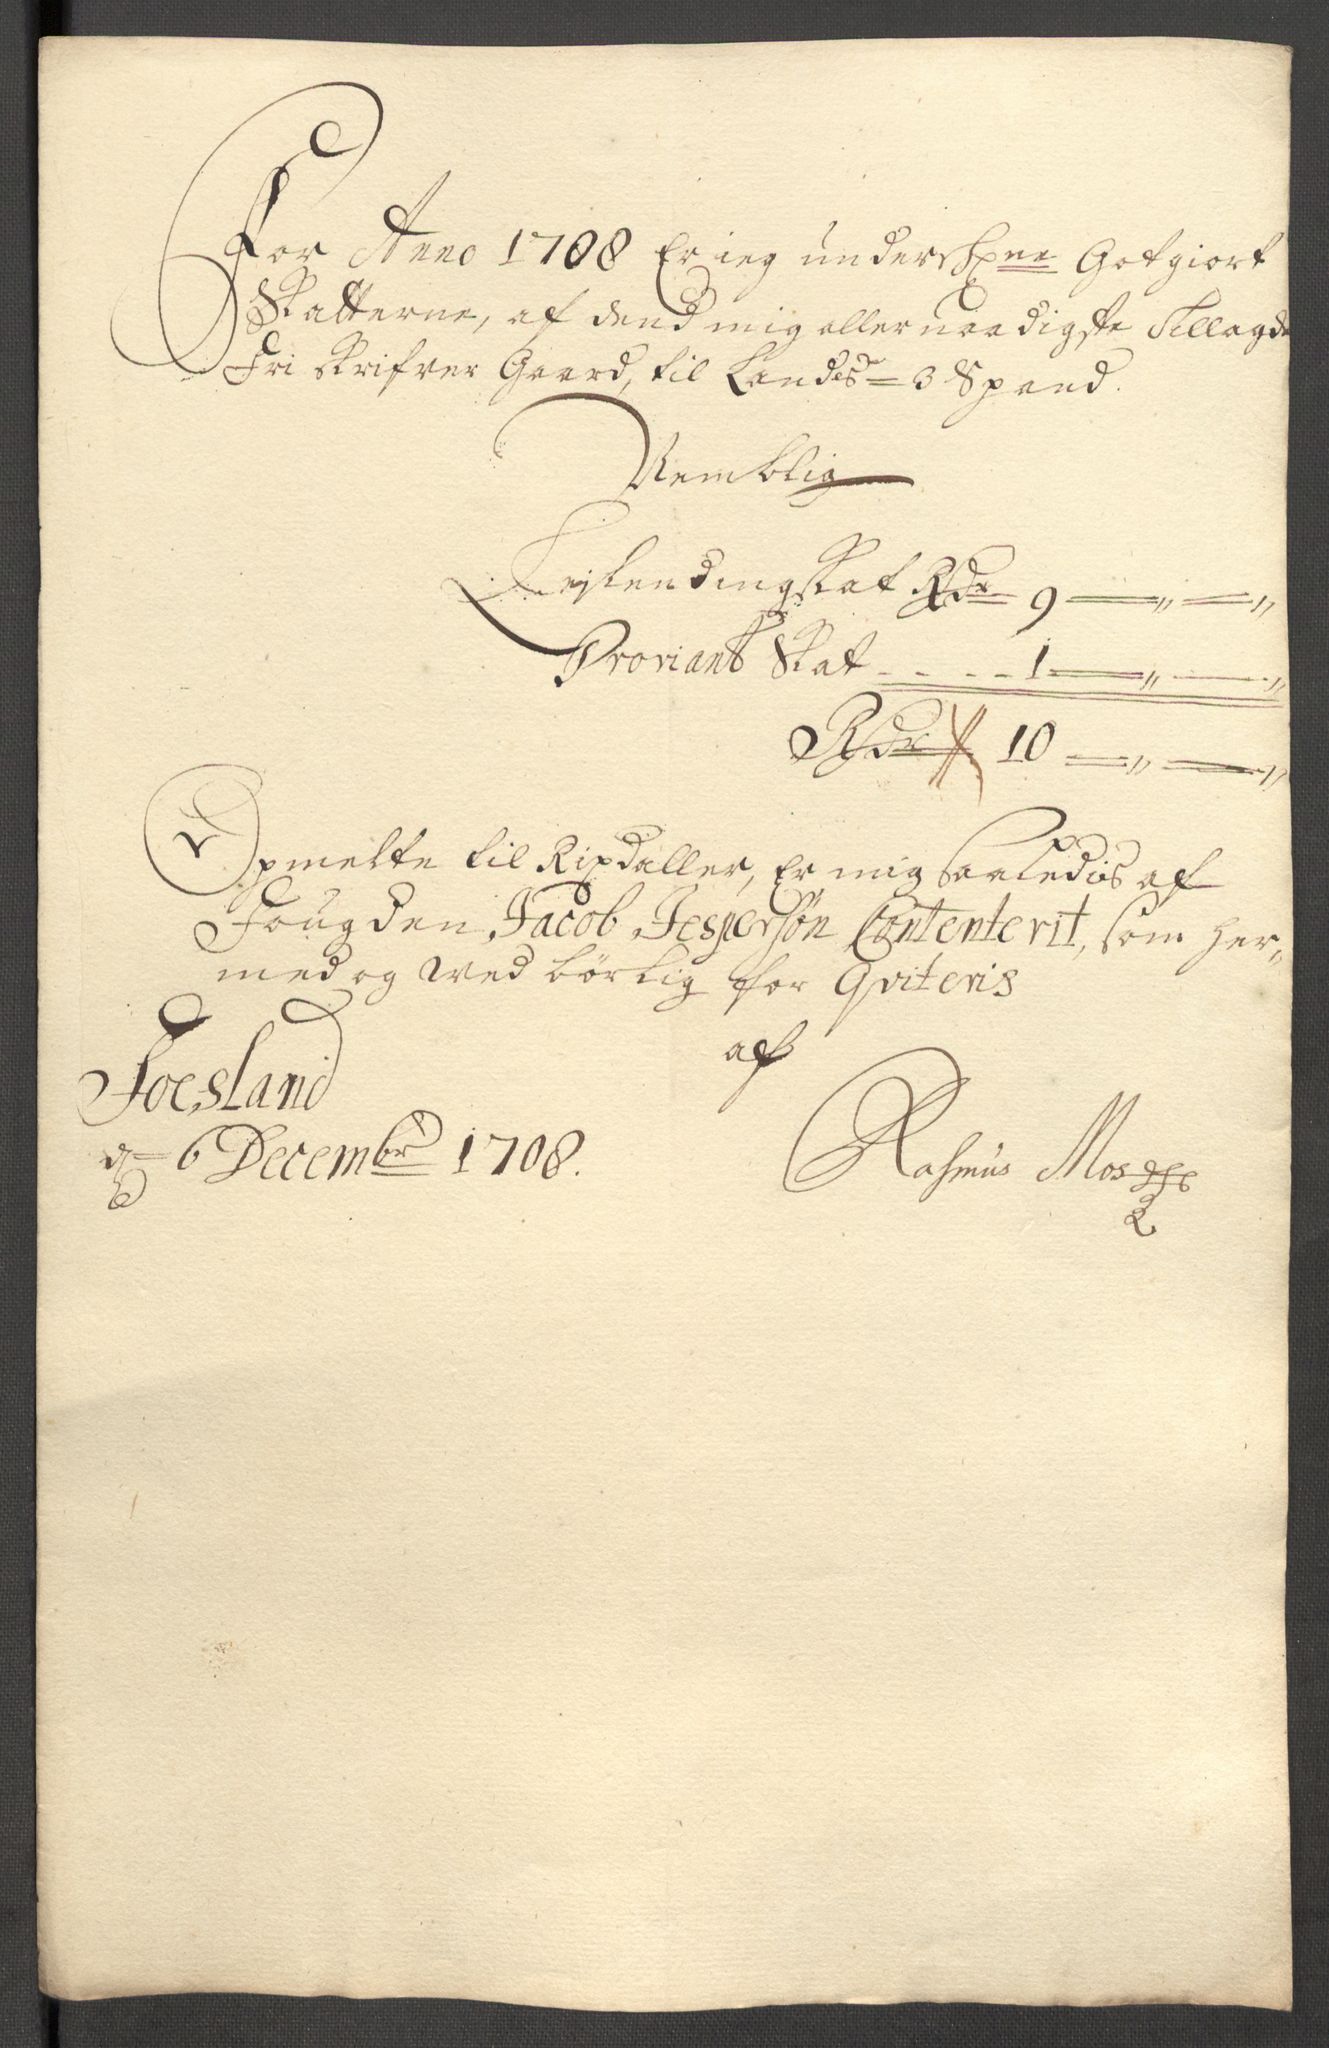 For Anno 1708 Er ieg underschne Gotgiort
Skatterne, af dend mig allernaadigste Tillagde
Fri Skrifver Gaard, til Landsd = 3 Spand.
Nemblig
Leylendingskat Rdr 9 — " — "
Proviant Skat - - - - 1 — " — "
Rdr 10 — " — "
Opmelte til Rixdaller, Er mig saaledis af
Fougden Jacob Jespersøn Contenterit, som her,,
med og ved børlig for Qviteris
af
Foesland
d = 6 Decembr 1708.
Rasmus Mos